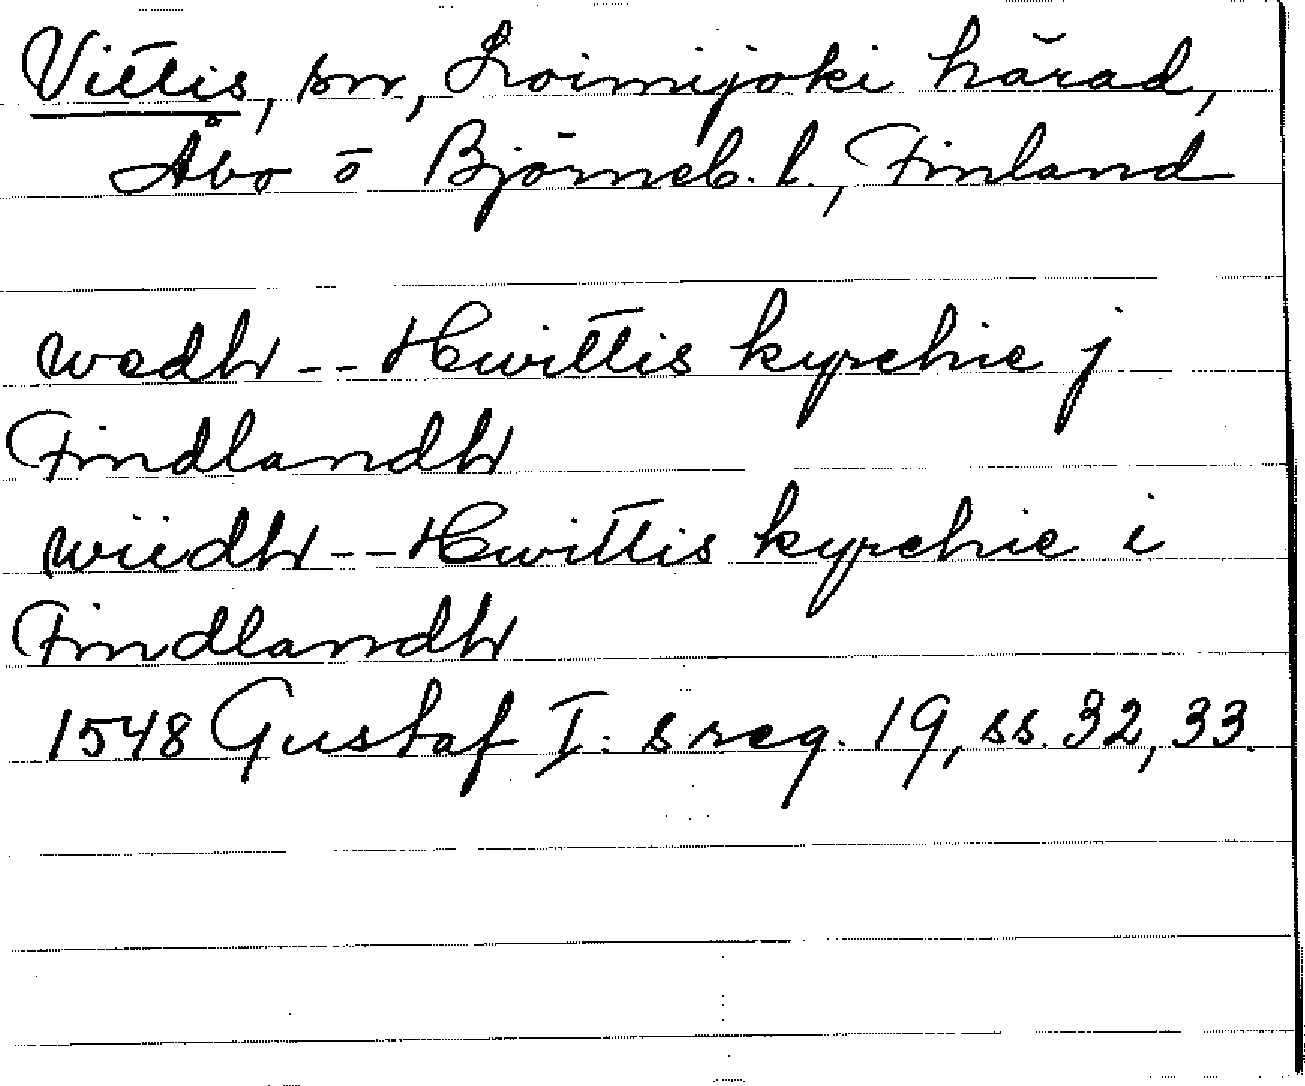 Vittis, sn, Loimijoki härad,
Åbo o Björneb. l., Finland
wedh -- Hwittis kyrchie j
Findlandh
wiidh -- Hwittis kyrchie i
Findlandh
1548 Gustaf I: s reg. 19, ss. 32, 33.